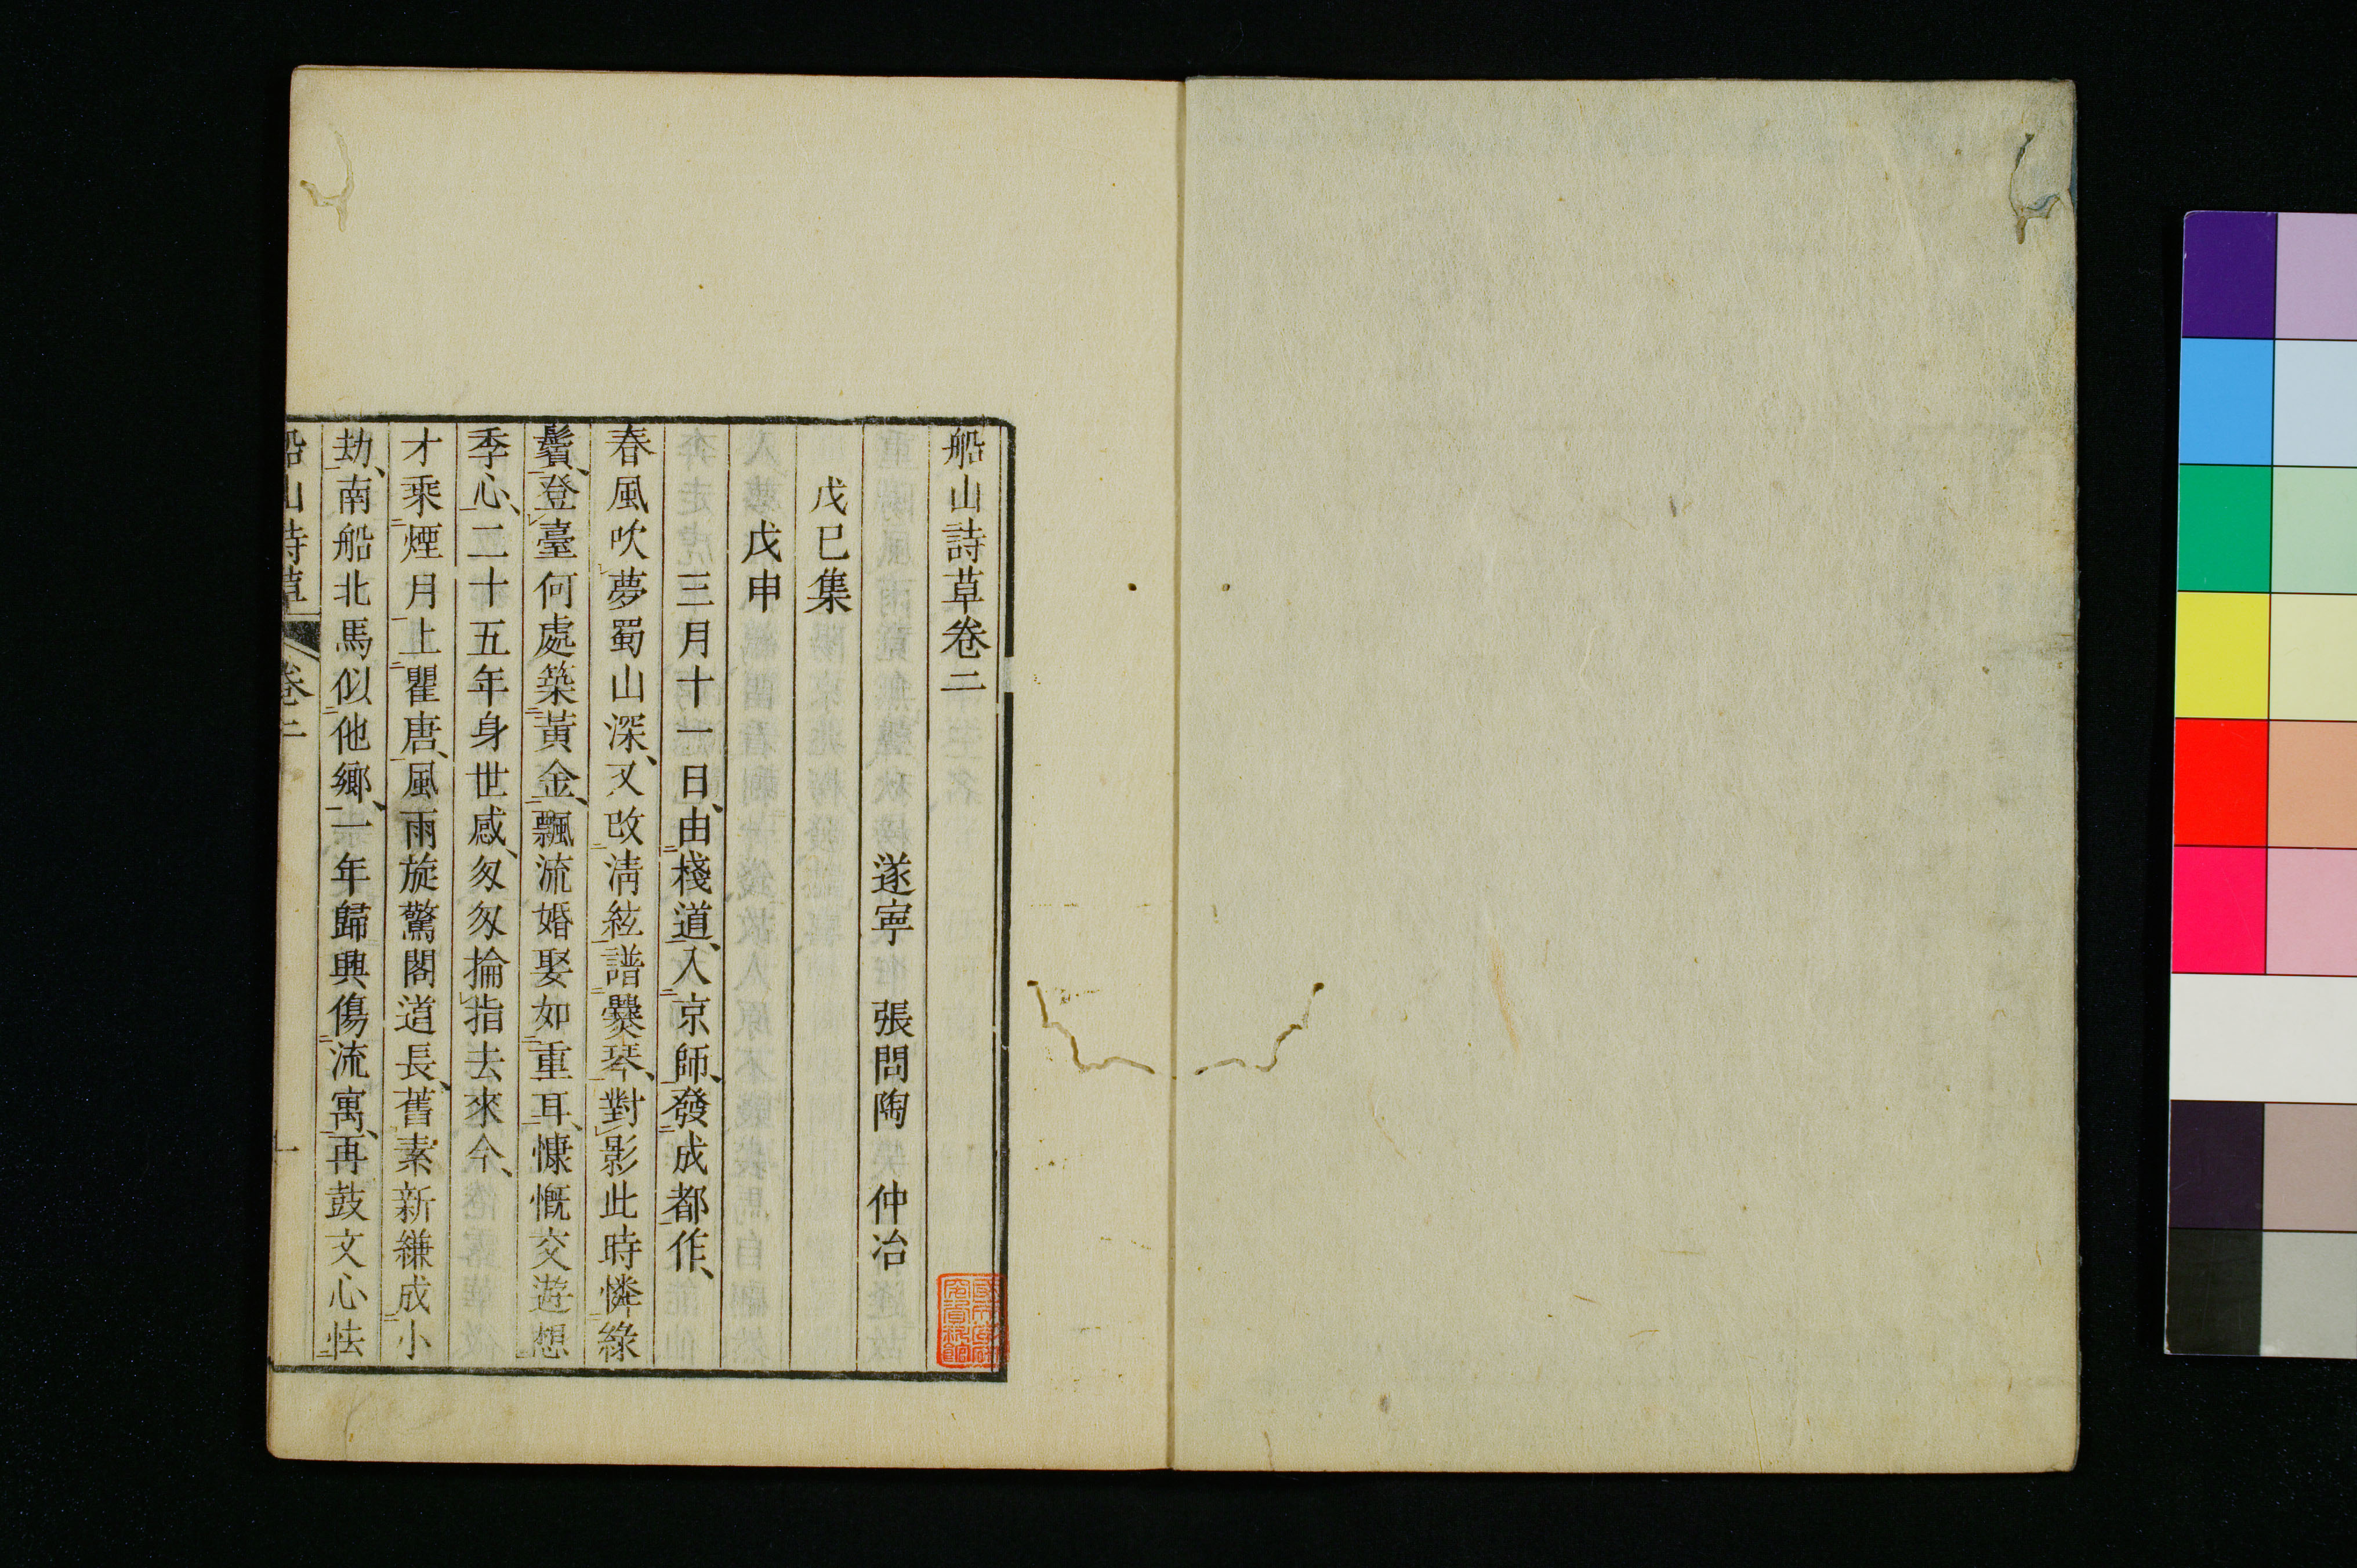 船山詩草卷二
遂寧　張問陶　仲冶
戊己集
戊申
三月十一日、由棧道、入京師、發成都作、
春風吹夢蜀山深、又改淸絃譜爨琴、對影此時憐綠
鬢、登臺何處築黃金、飄流婚娶如重耳、慷慨交遊想
季心、二十五年身世感、匆匆掄指去來今、
才乘煙月上瞿唐、風雨旋驚閣道長、舊素新縑成小
劫、南船北馬似他鄉、一年歸興傷流寓、再鼓文心怯
船山詩草　卷二　一